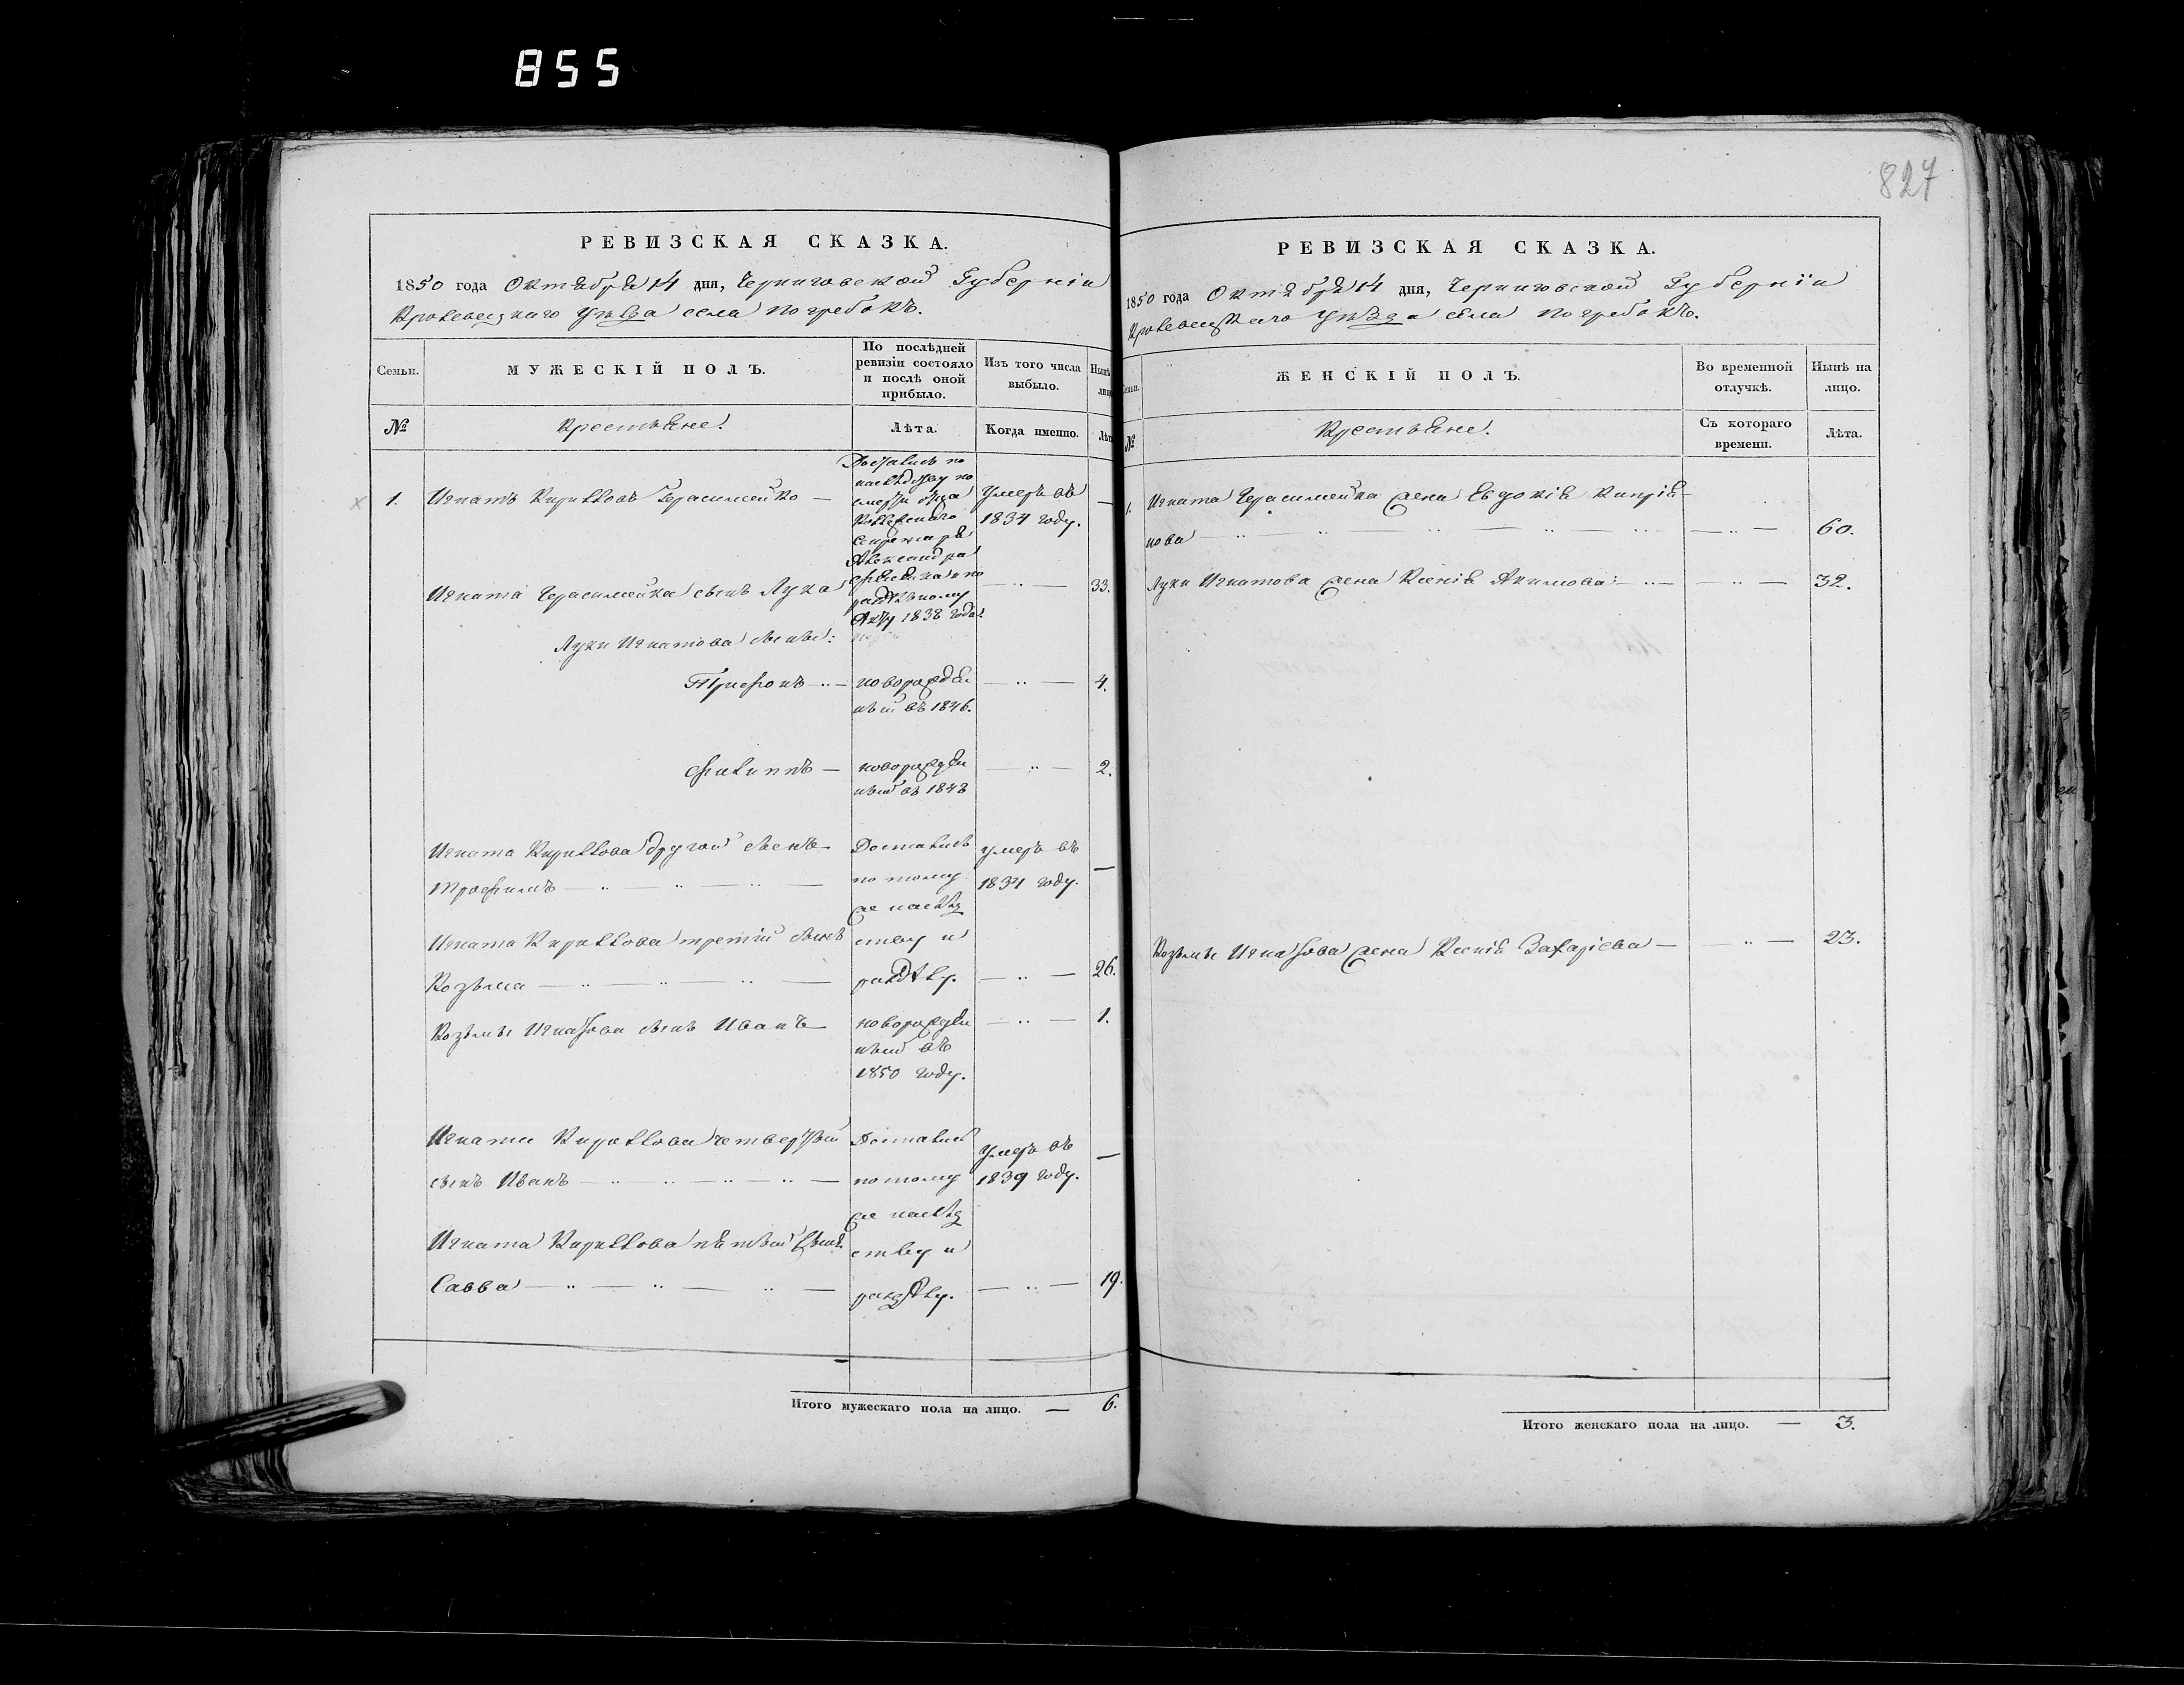 855
827
РЕВИЗСКАЯ СКАЗКА.
1850 года Октября 14 дня, Черниговской Губерніи
Кролевецкаго Уѣзда села Погребокъ.
Семьи. МУЖЕСКІЙ ПОЛЪ. По послѣдней ревизіи состояло и послѣ оной прибыло. Изъ того числа выбыло. Нынѣ лицо
№ Крестьяне. Лѣта. Когда именно. Лѣт
1. Игнатъ Кирилловъ Герасимейко — Достались по
наслѣдству по
смерти отца Умеръ въ —
1834 году.
Секретаря
Александра
Игната Герасимейка сынъ Лука — 33.
раздѣльному
Акту 1838 года.
Луки Игнатова сыны:
Трифонъ — новорожден — 4.
ный въ 1846.
Филиппъ — новорожден — 2.
ный въ 1848
Игната Кириллова другой сынъ Достались умеръ въ
Трофимъ — по тому 1834 году. —
же наслѣд
Игната Кириллова третій сынъ ству и
Козьма — раздѣлу. — 26.
Козьмы Игнатова сынъ Иванъ новорожден — 1.
ный въ
1850 году.
Игната Кириллова четвертый Достался Умеръ въ —
сынъ Иванъ — по тому 1839 году.
же наслѣд
Игната Кириллова пятый сынъ ству и
Савва — раздѣлу. — 19.
Итого мужескаго пола на лицо. — 6.
РЕВИЗСКАЯ СКАЗКА.
1850 года Октября 14 дня, Черниговской Губерніи
Кролевецкаго Уѣзда села Погребокъ.
Семьи. ЖЕНСКІЙ ПОЛЪ. Во временной отлучкѣ. Нынѣ на лицо.
№ Крестьяне. Съ котораго времени. Лѣта.
1. Игната Герасимейка жена Евдокія Кипрія-
нова — — 60.
Луки Игнатова жена Ксенія Акимова: — — 32.
Козьмы Игнатова жена Ксенія Захаріева — — 23.
Итого женскаго пола на лицо. — 3.